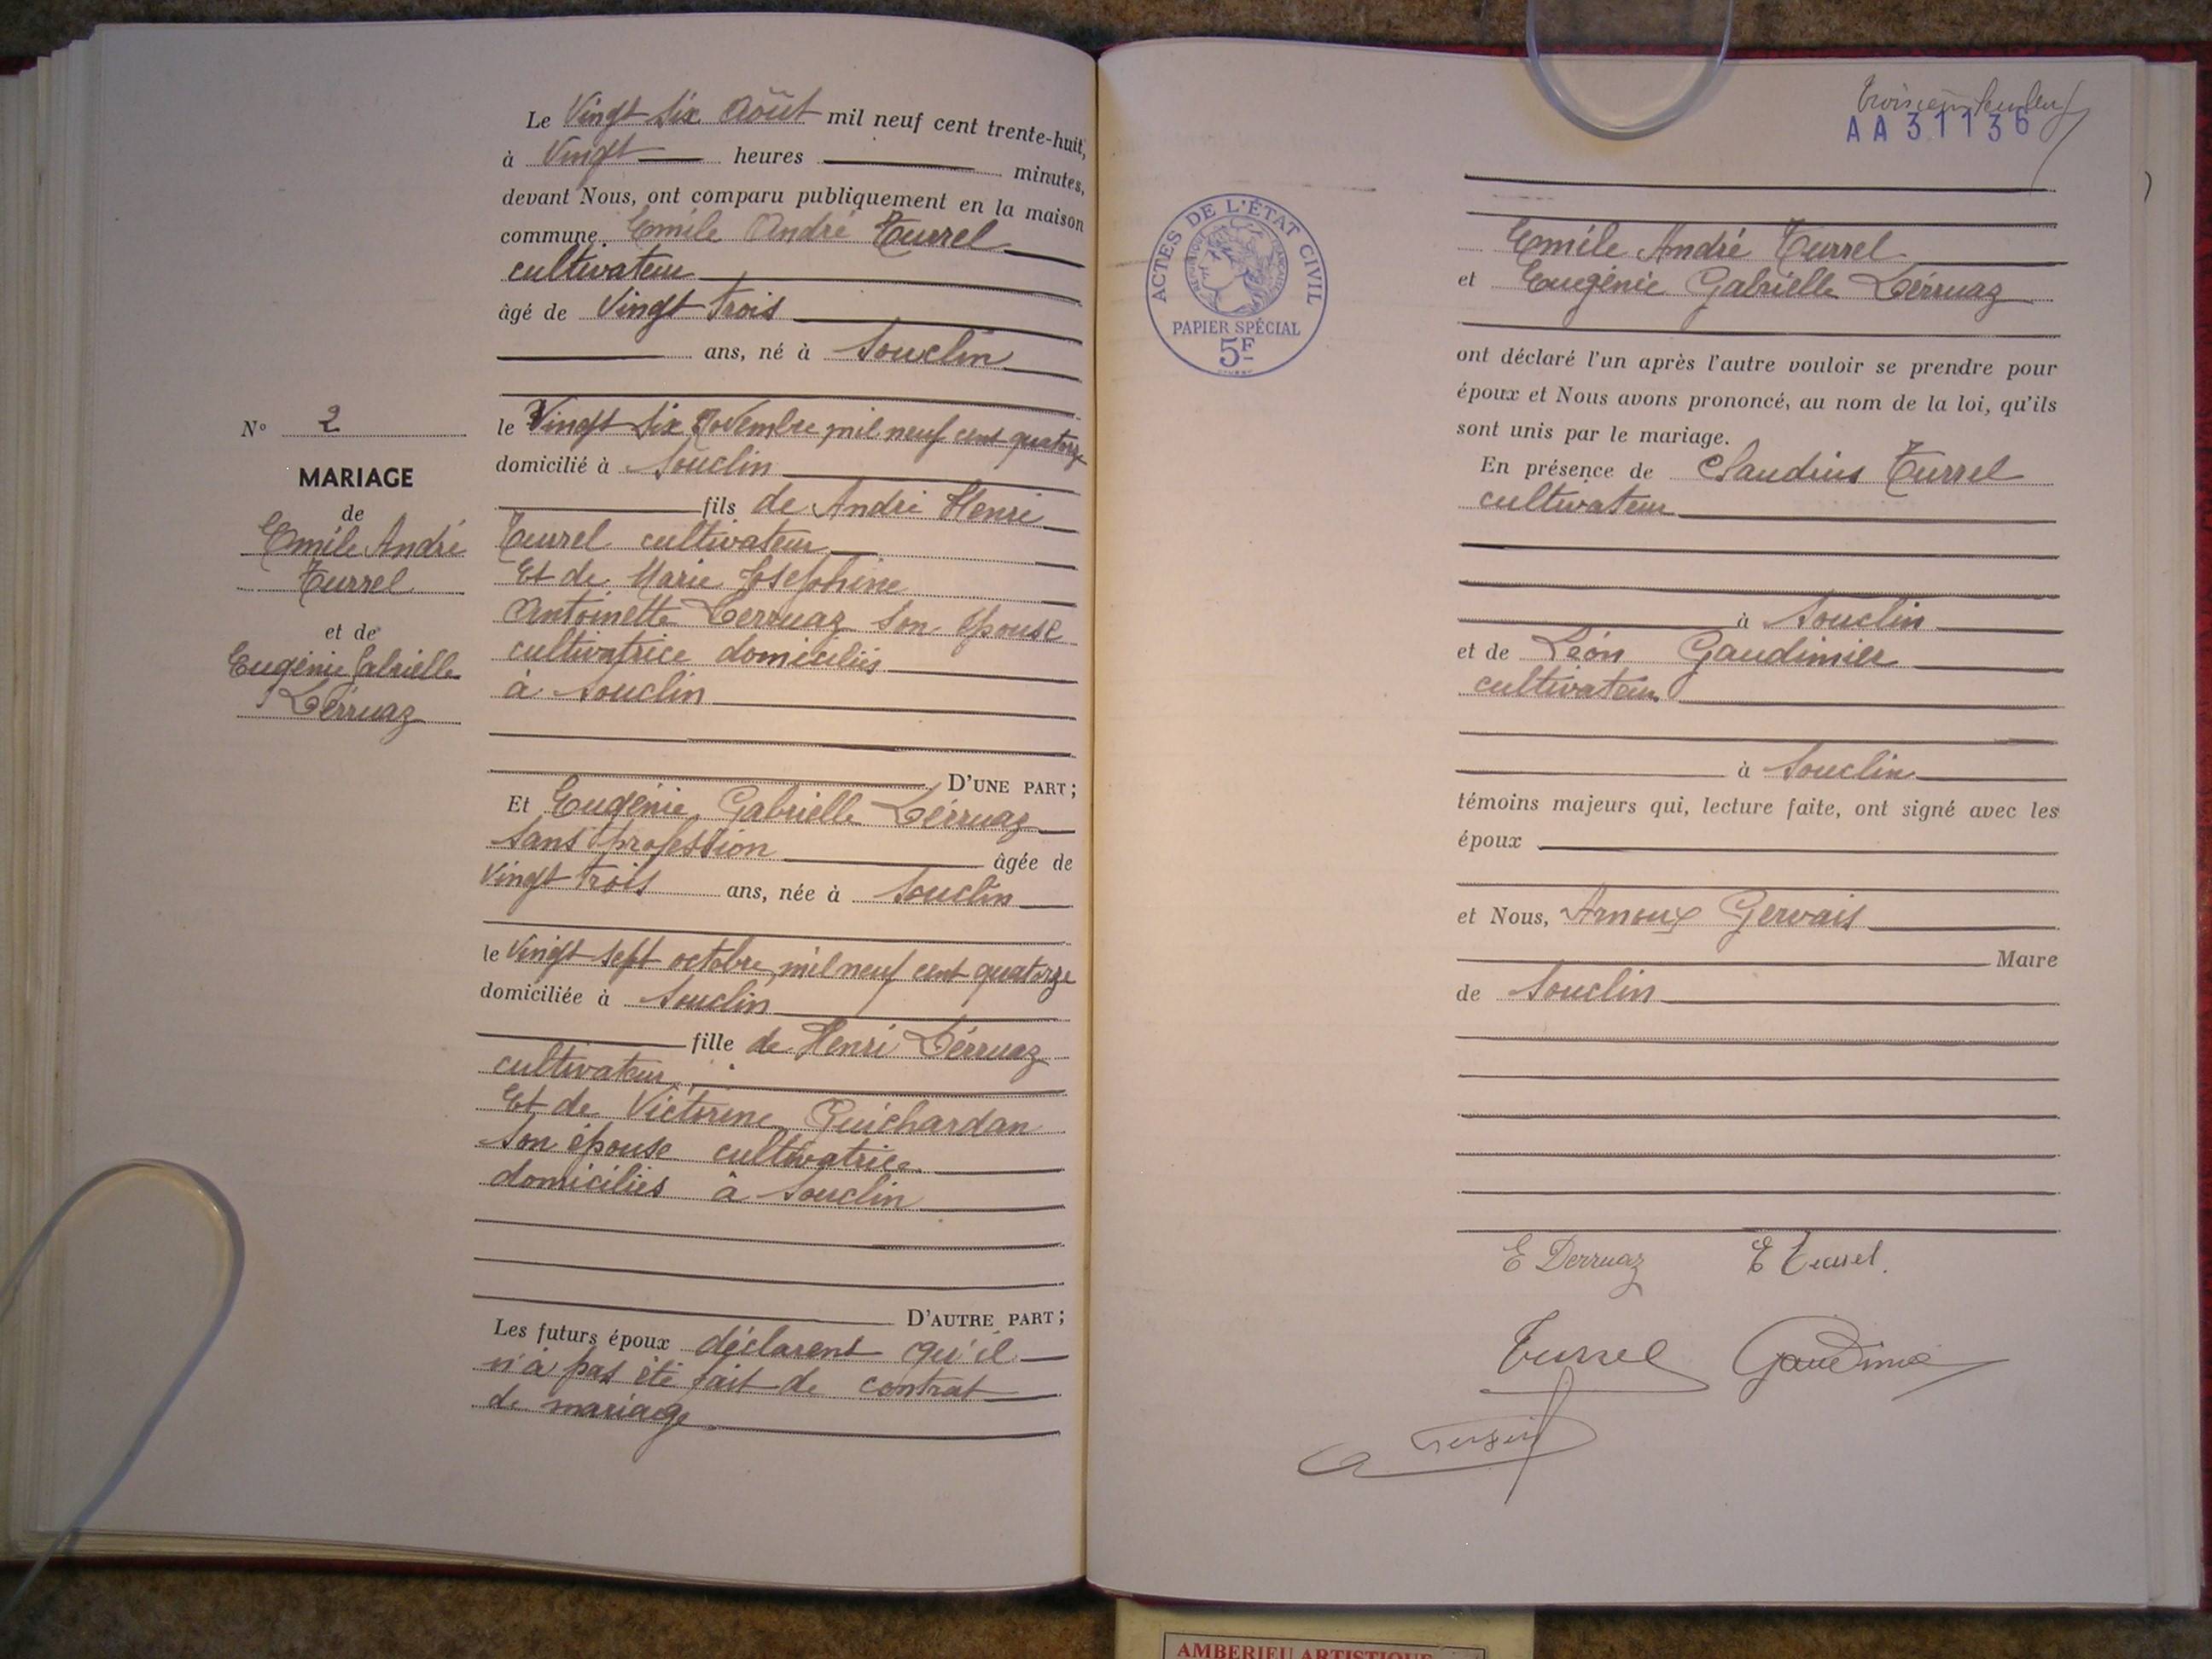 Le Vingt Six Août mil neuf cent trente-huit,
à Vingt heures minutes,
devant Nous, ont comparu publiquement en la maison
commune. Emile André Turrel
cultivateur
âgé de Vingt trois
ans, né à Souclin
le Vingt Six Novembre mil neuf cent quatorze
domicilié à Souclin
fils de André Henri
Turrel cultivateur
Et de Marie Josephine
Antoinette Derruaz son épouse
cultivatrice domiciliés
à Souclin
D'UNE PART;
Et Eugénie Gabrielle Dérruaz
sans profession âgée de
Vingt trois ans, née à Souclin
le Vingt sept octobre mil neuf cent quatorze
domiciliée à Souclin
fille de Henri Dérruaz
cultivateur
Et de Victorine Guichardan
son épouse cultivatrice
domiciliés à Souclin
D'AUTRE PART;
Les futurs époux déclarent qu'il
n'à pas été fait de contrat
de mariage
N° 2
MARIAGE
de
Emile André
Turrel
et de
Eugénie Gabrielle
Dérruaz
AA 31136
ACTES DE L'ÉTAT CIVIL
RÉPUBLIQUE FRANÇAISE
PAPIER SPÉCIAL
5F
Emile André Turrel
et Eugénie Gabrielle Dérruaz
ont déclaré l'un après l'autre vouloir se prendre pour
époux et Nous avons prononcé, au nom de la loi, qu'ils
sont unis par le mariage.
En présence de Claudius Turrel
cultivateur
à Souclin
et de Léon Gaudimier
cultivateur
à Souclin
témoins majeurs qui, lecture faite, ont signé avec les
époux
et Nous, Arnoux Gervais
Maire
de Souclin
E Derruaz E Turrel.
Turrel
AMBERIEU ARTISTIQUE